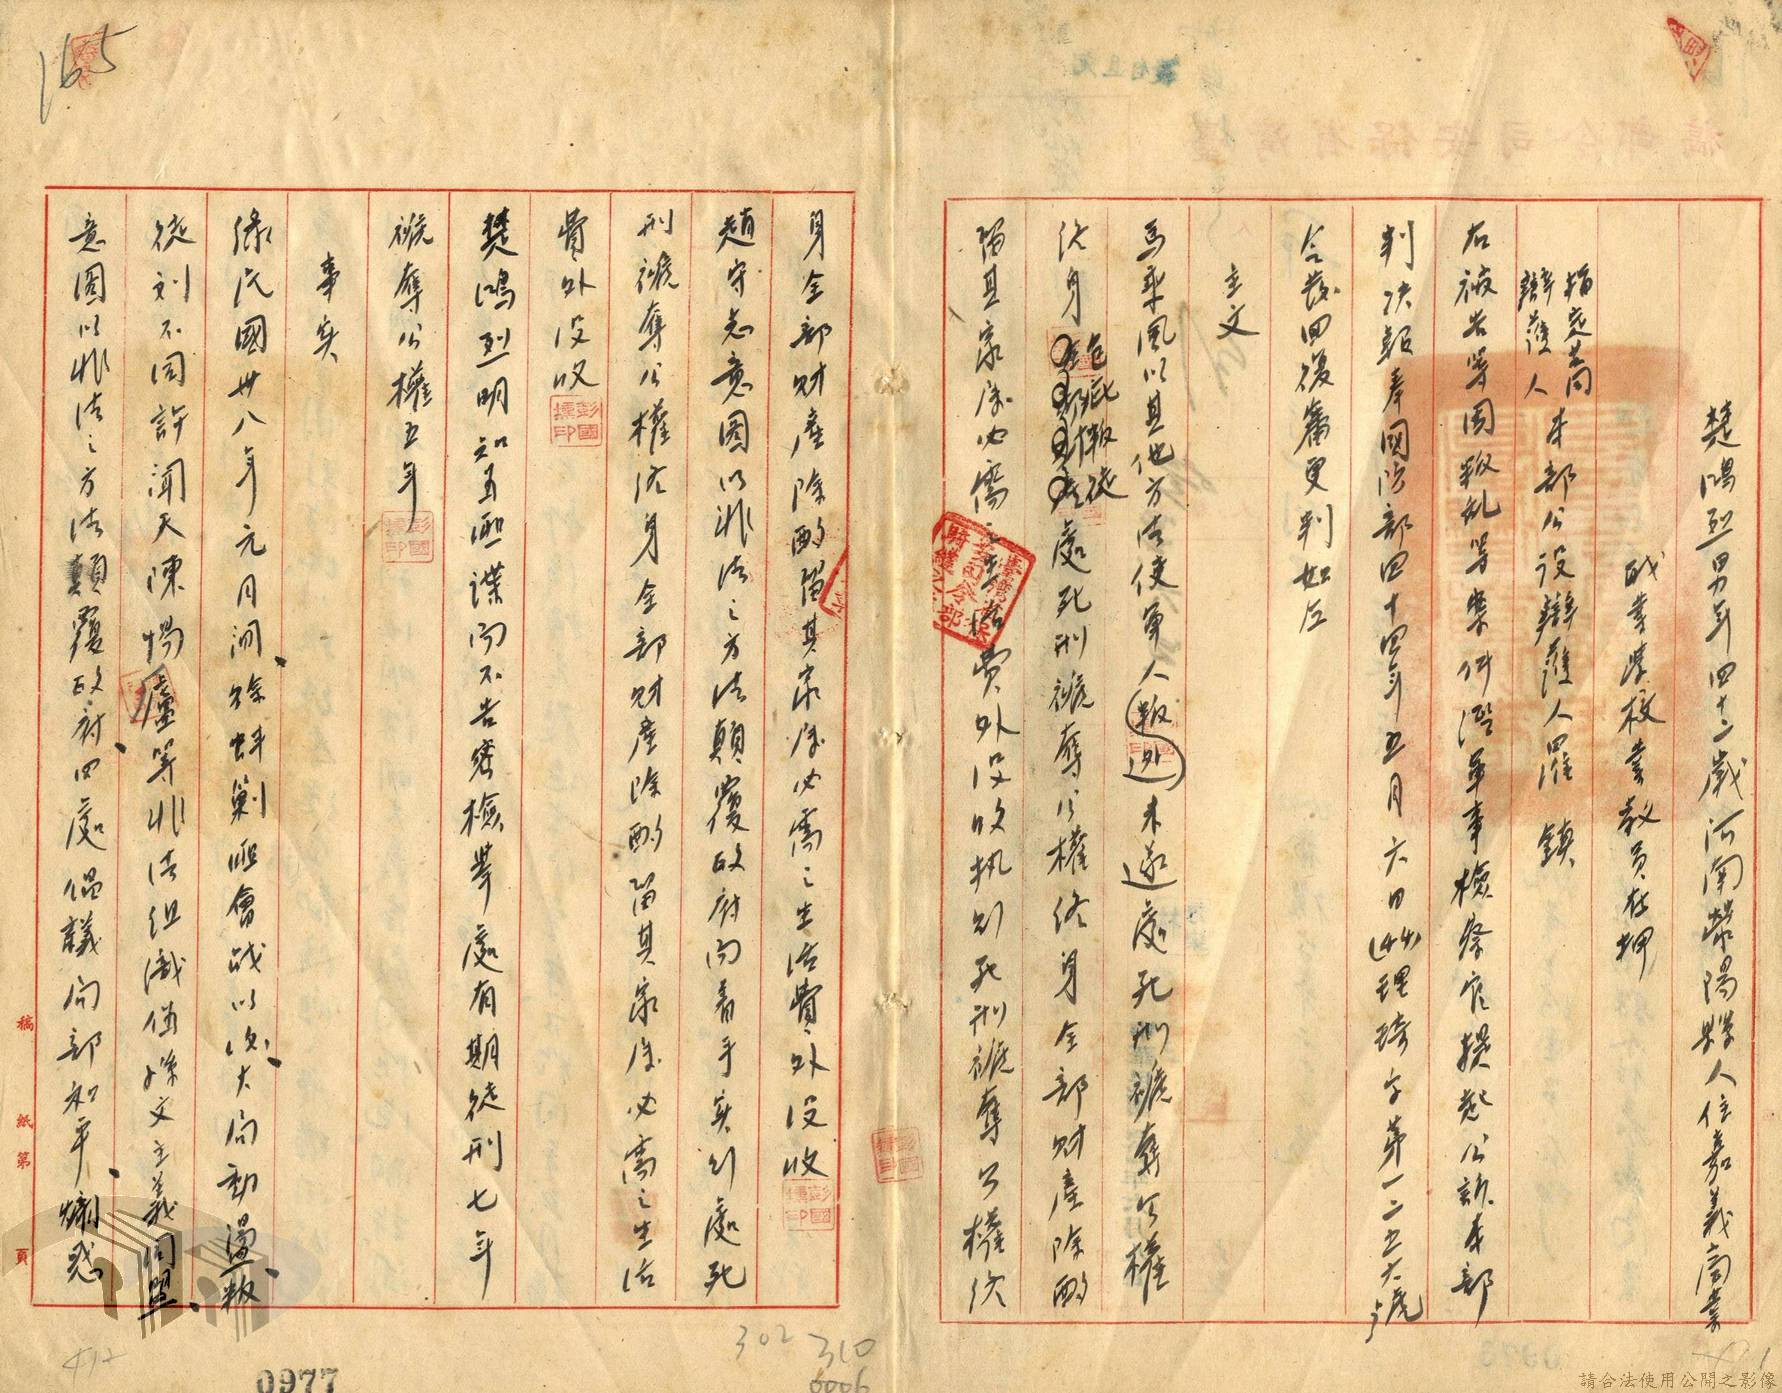 楚鴻烈男年四十二歲河南滎陽縣人住嘉義商業
職業學校業教員在押
指定共同
辯護人
本部公設辯護人羅 鎮
右被告等因叛亂等案件經軍事檢察官提起公訴本部
判決報奉國防部四十四年五月六日(44)理琦字第一二五六號
令發回復審更判如左
主文
馬乘風以其他方法使軍人叛逃未遂處死刑褫奪公權
終身包庇叛徒處死刑褫奪公權終身全部財產除酌
留其家屬必需之生活費外沒收執行死刑褫奪公權終
身全部財產除酌留其家屬必需之生活費外沒收
趙守志意圖以非法之方法顛覆政府而着手實行處死
刑褫奪公權終身全部財產除酌留其家屬必需之生活
費外沒收
楚鴻烈明知為匪諜而不告密檢舉處有期徒刑七年
褫奪公權五年
事實
緣民國卅八年元月間、徐蚌剿匪會戰以後、大局動盪、叛
徒刘不同許聞天陳惕廬等非法組織偽孫文主義同盟、
意圖以非法之方法顛覆政府、四處倡議局部和平、煽惑
165
稿紙第 頁
0977
302
310
0006
彭國標印
請合法使用公開之影像